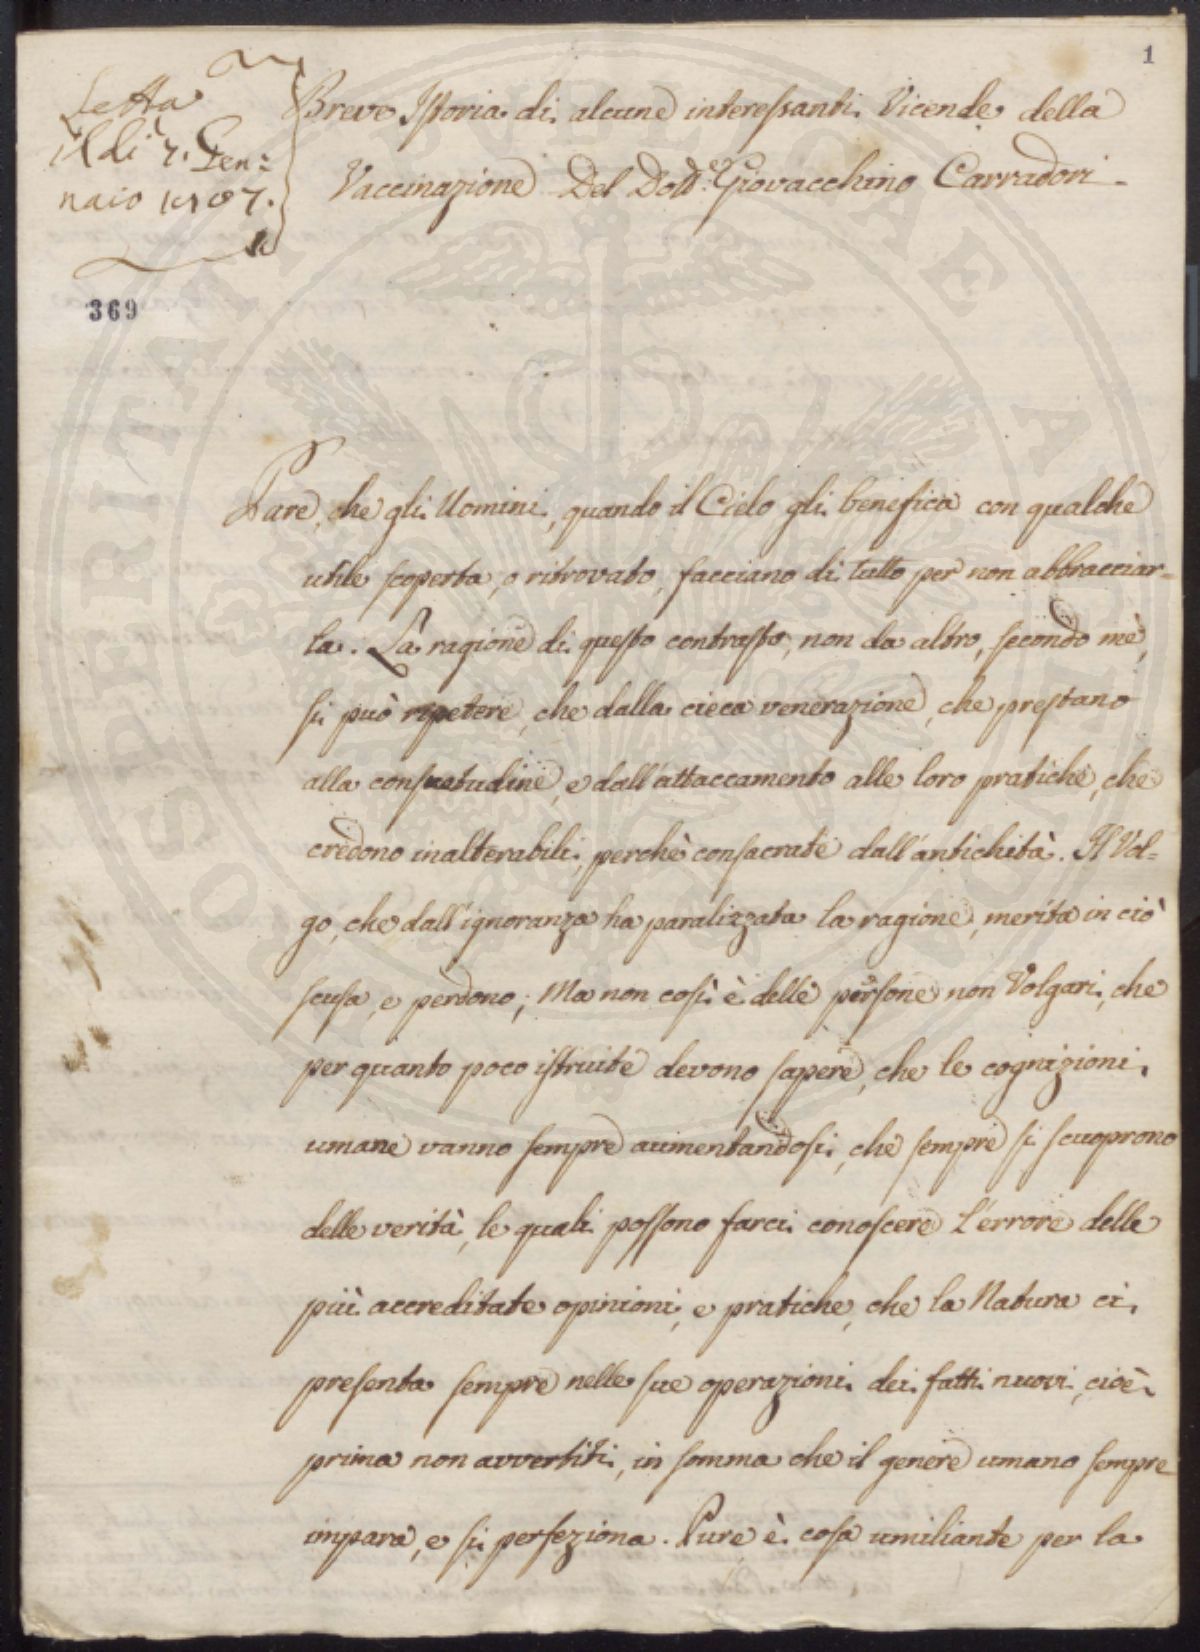 1
Letta
il dì 7. Gen:
naio 1807.
369
Breve Istoria di alcune interessanti Vicende della
Vaccinazione Del Dott.e Giovacchino Carradori.
Pare, che gli Uomini, quando il Cielo gli benefica con qualche
utile scoperta, o ritrovato, facciano di tutto per non abbracciar=
la. La ragione di questo contrasto, non da altro, secondo me,
si può ripetere, che dalla cieca venerazione, che prestano
alla consuetudine, e dall'attaccamento alle loro pratiche, che
credono inalterabili, perchè consacrate dall'antichità. Il Vol=
go, che dall'ignoranza ha paralizzata la ragione, merita in ciò
scusa, e perdono; Ma non così è delle persone non Volgari, che
per quanto poco istruite devono sapere, che le cognizioni
umane vanno sempre aumentandosi, che sempre si scuoprono
delle verità, le quali possono farci conoscere l'errore delle
più accreditate opinioni, e pratiche, che la Natura ci
presenta sempre nelle sue operazioni dei fatti nuovi, cioè
prima non avvertiti, in somma che il genere umano sempre
impara, e si perfeziona. Pure è cosa umiliante per la
PROSPERITATI PUBLICAE AUGENDAE